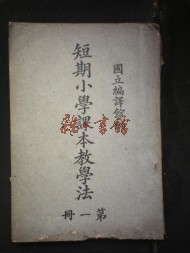 國立編譯館
短期小學課本教學法
第一冊